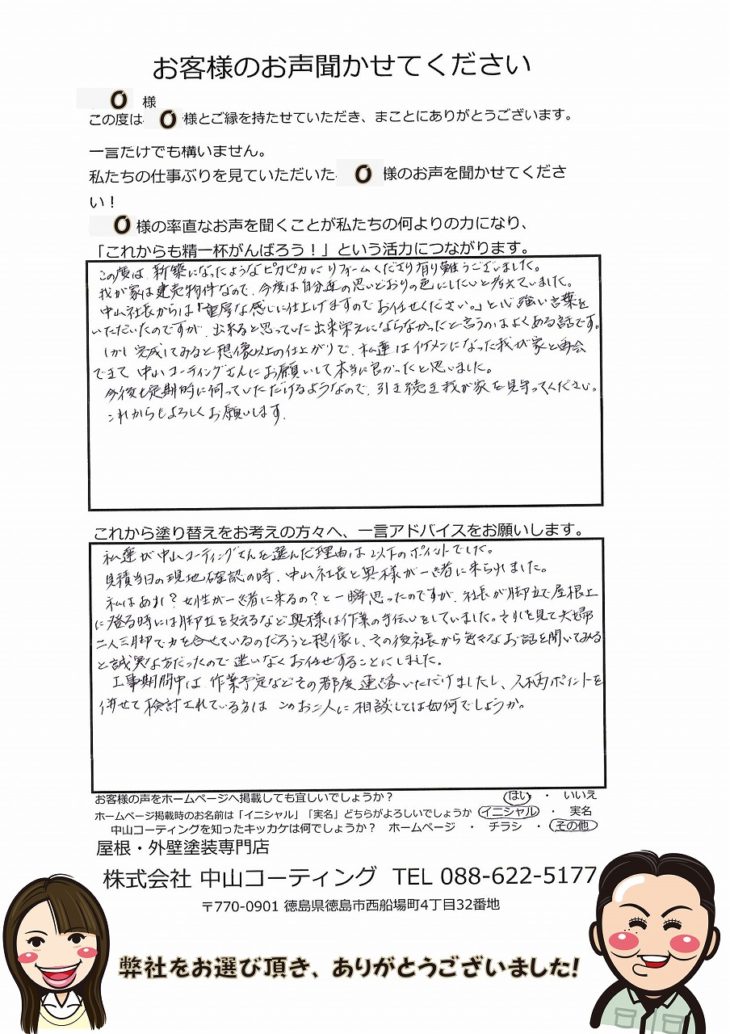 お客様のお声聞かせてください
O 様
この度は O 様とご縁を持たせていただき、まことにありがとうございます。
一言だけでも構いません。
私たちの仕事ぶりを見ていただいた O 様のお声を聞かせてくださ
い！
O 様の率直なお声を聞くことが私たちの何よりの力になり、
「これからも精一杯がんばろう！」という活力につながります。
この度は、新築になったようなピカピカにリフォームくださり有り難うございました。
我が家は建売物件なので、今度は自分達の思いどおりの色にしたいと考えていました。
中山社長からは「重厚な感じに仕上げますのでお任せください。」と心強い言葉を
いただいたのですが、出来ると思っていた出来栄えにならなかったと言うのはよくある話です。
しかし完成してみると想像以上の仕上がりで、私達はイケメンになった我が家と再会
できて中山コーティングさんにお願いして本当に良かったと思いました。
今後も定期的に伺っていただけるようなので、引き続き我が家を見守ってください。
これからもよろしくお願いします。
これから塗り替えをお考えの方々へ、一言アドバイスをお願いします。
私達が中山コーティングさんを選んだ理由は以下のポイントでした。
見積当日の現地確認の時、中山社長と奥様が一緒に来られました。
私はあれ？女性が一緒に来るの？と一瞬思ったのですが、社長が脚立で屋根上
に登る時には脚立を支えるなど奥様は作業の手伝いをしていました。それを見て夫婦
二人三脚で力を合せているのだろうと想像し、その後社長から色々なお話を聞いてみる
と誠実な方だったので迷いなくお任せすることにしました。
工事期間中は作業予定などその都度連絡いただけましたし、人柄ポイントを
併せて検討されている方は このお二人に相談しては如何でしょうか。
お客様の声をホームページへ掲載しても宜しいでしょうか？ はい ・ いいえ
ホームページ掲載時のお名前は「イニシャル」「実名」どちらがよろしいでしょうか イニシャル ・ 実名
中山コーティングを知ったキッカケは何でしょうか？ ホームページ ・ チラシ ・ その他
屋根・外壁塗装専門店
株式会社 中山コーティング TEL 088-622-5177
〒770-0901 徳島県徳島市西船場町4丁目32番地
弊社をお選び頂き、ありがとうございました!